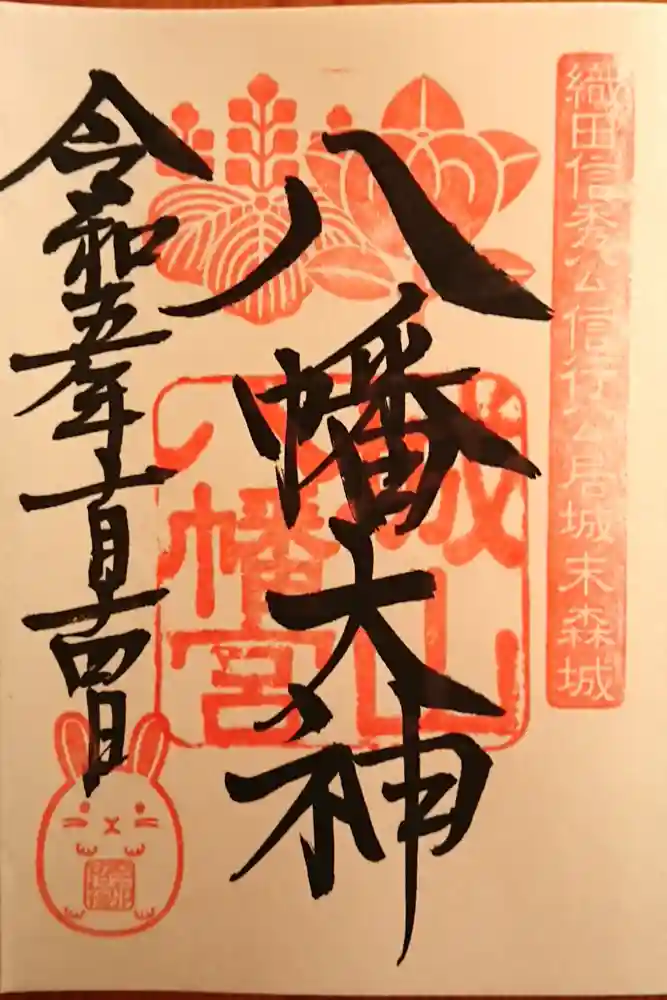 織田信秀公信行公居城末森城
八幡大神
城山
八幡宮
令和五年十月十四日